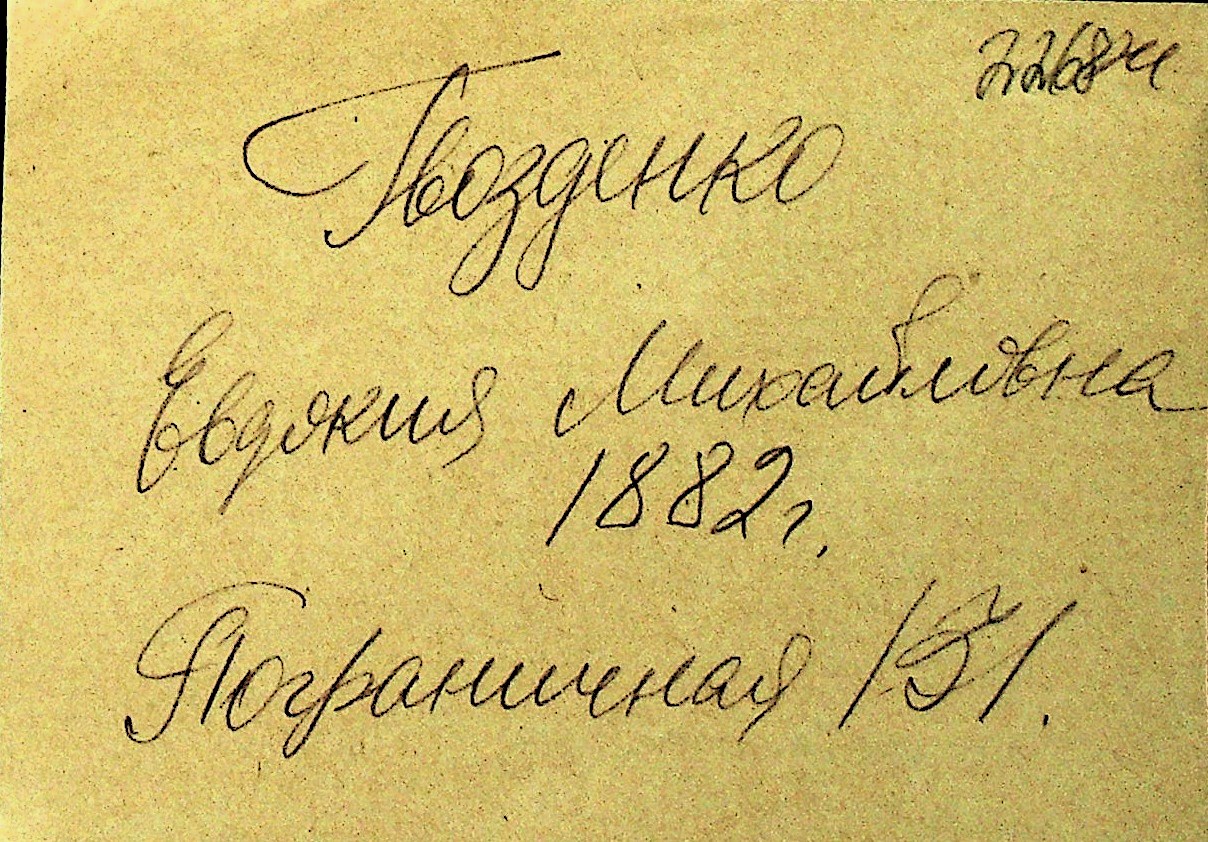 2268ч
Гвозденко
Евдокия Михайловна
1882г.
Пограничная 151.